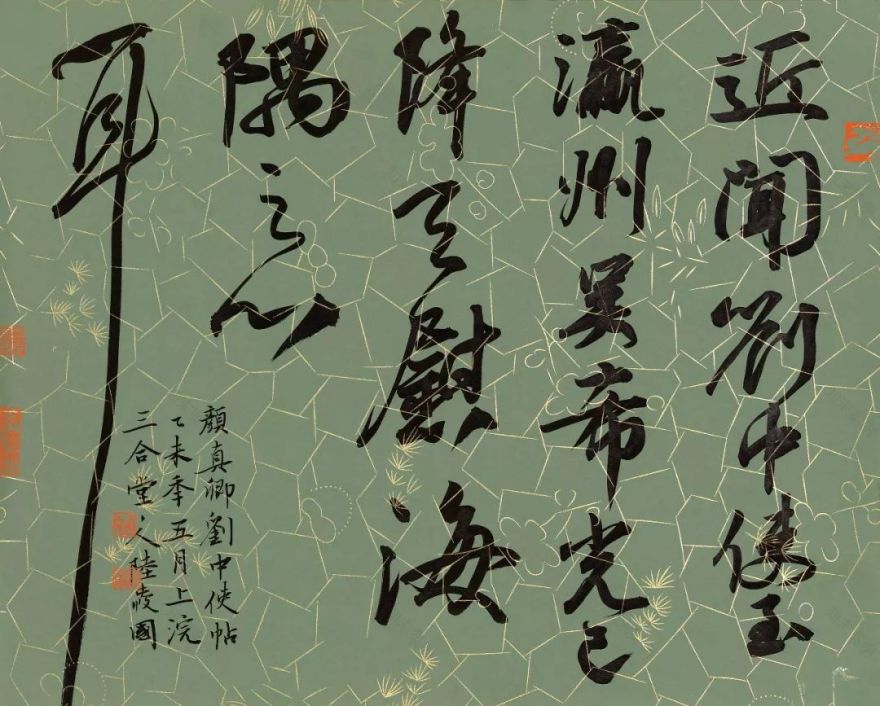 近聞劉中使至
瀛州吳希光已
降足慰海
隅之心
耳
顏真卿劉中使帖
乙未秊五月上浣
三合堂人陸國